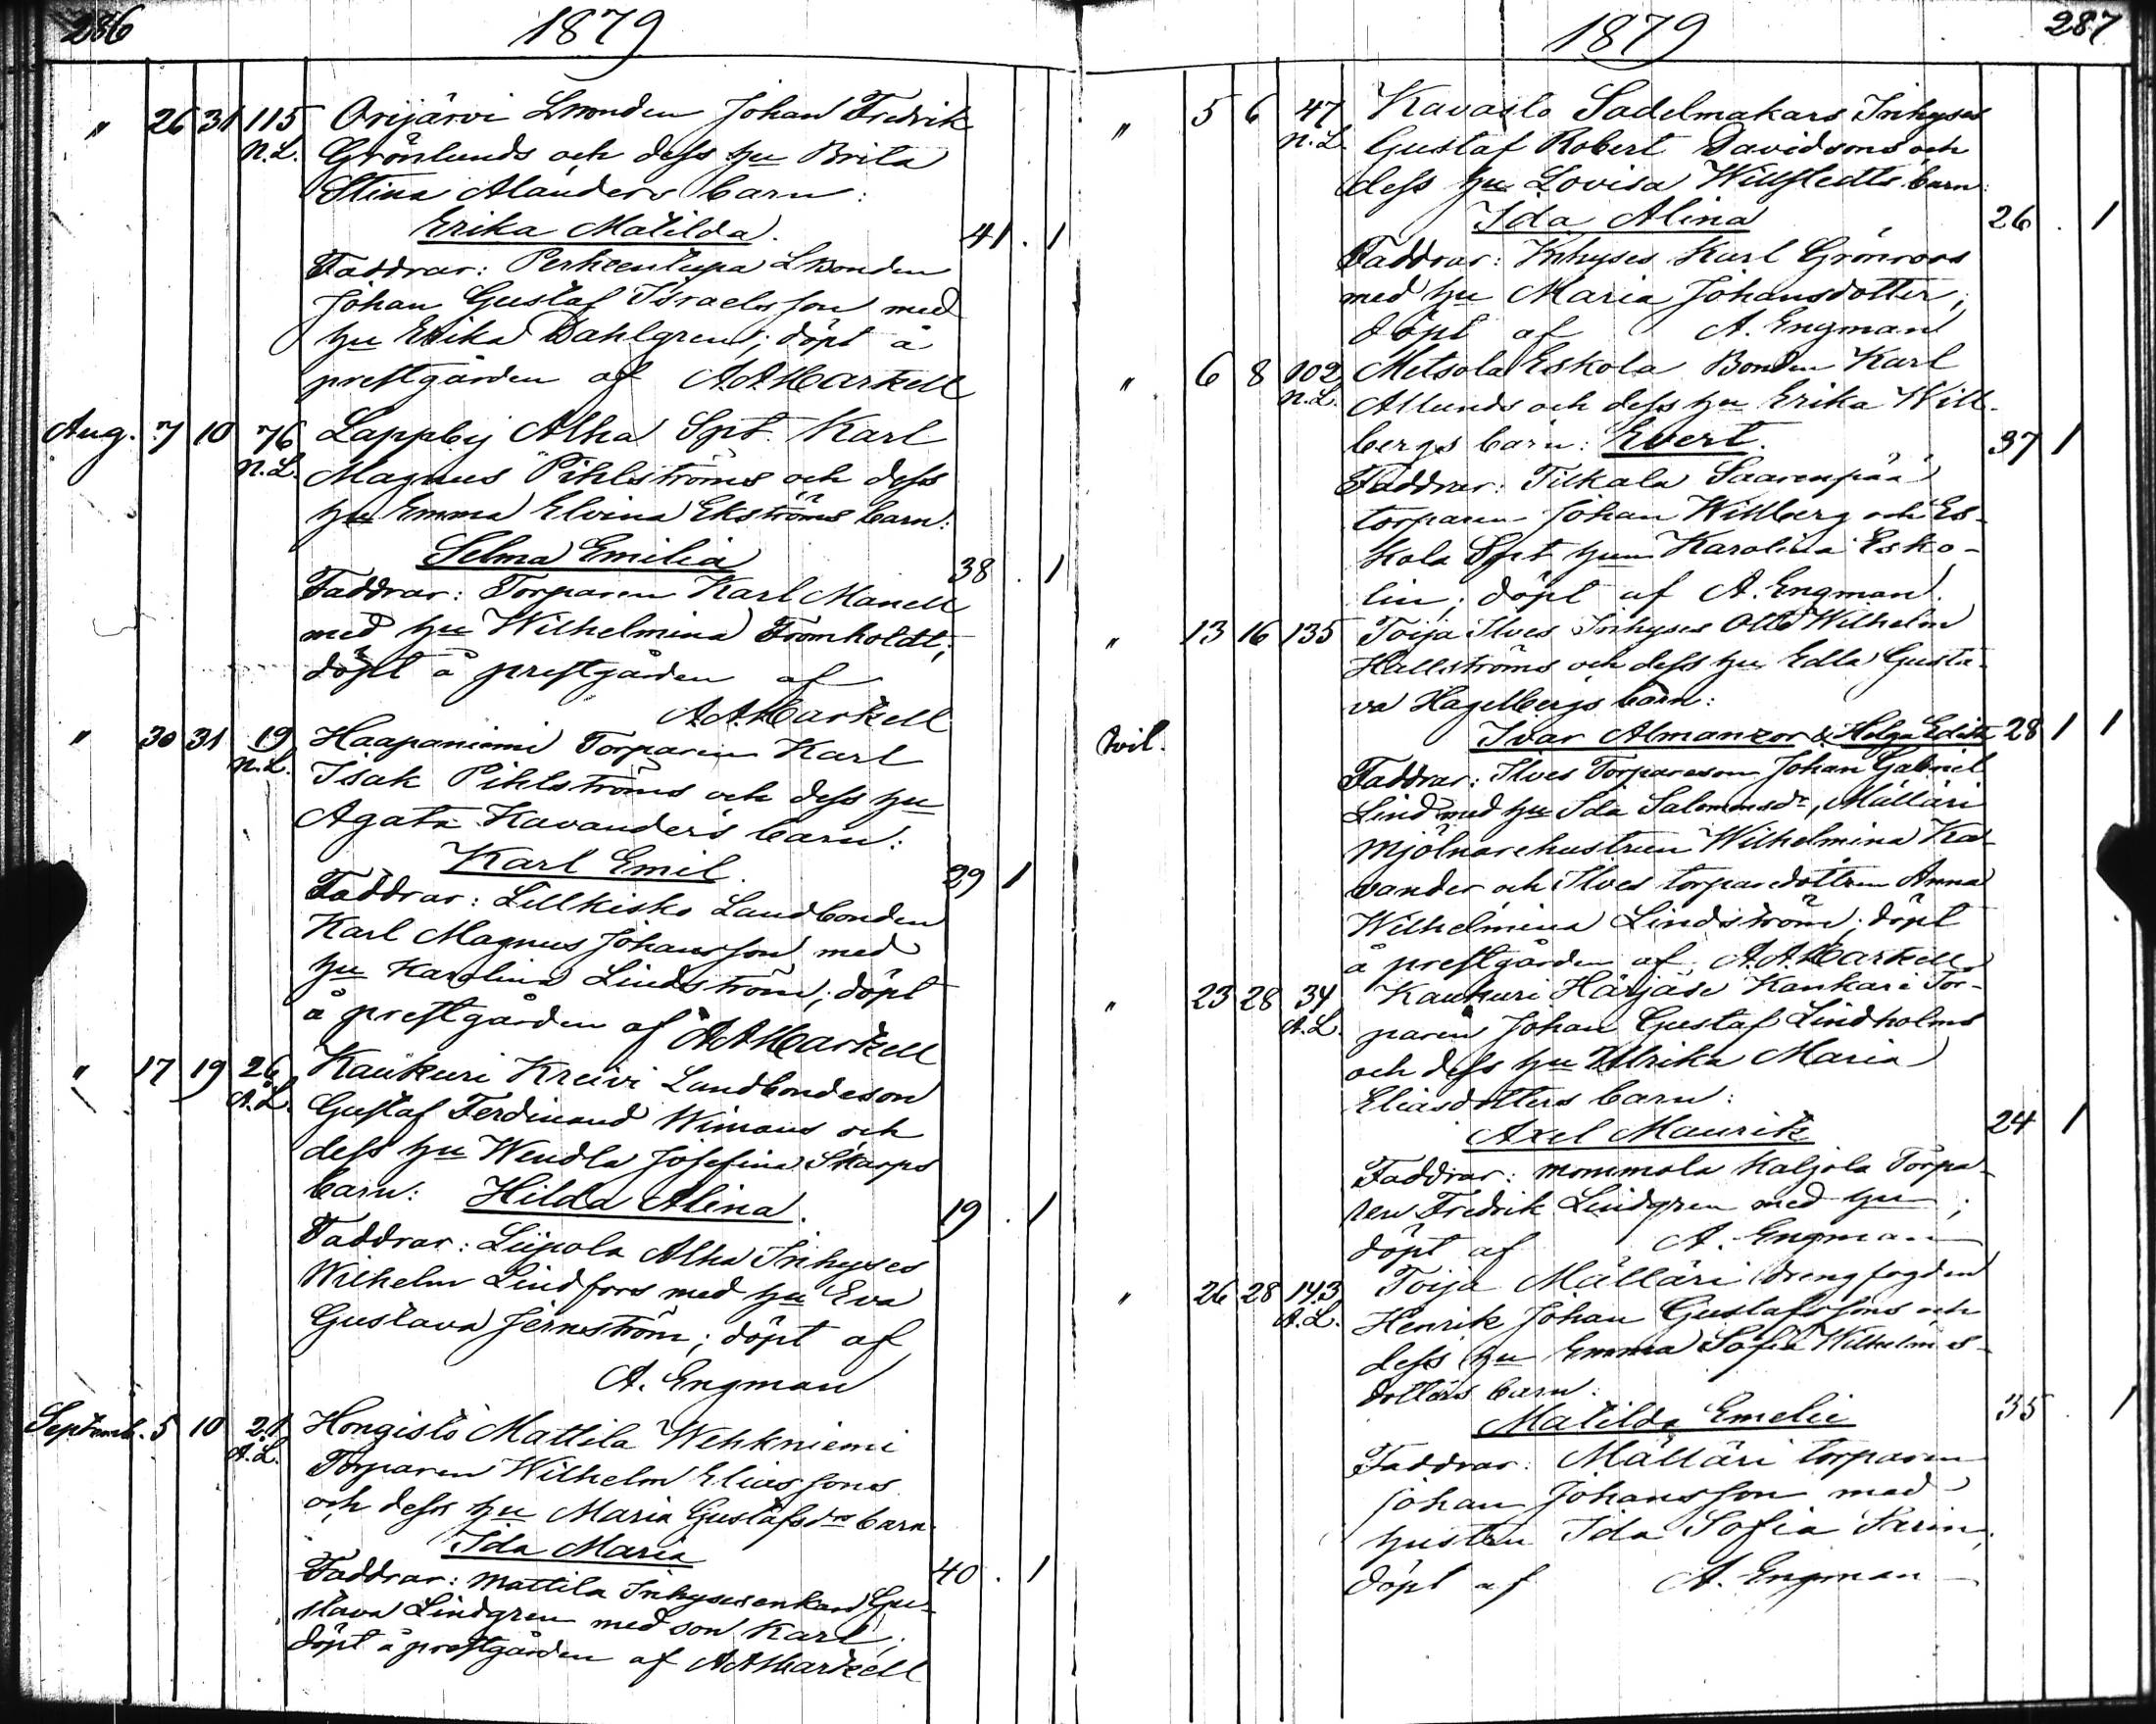 286
1879
" 26 31 115 Orijärvi Lbonden Johan Fredrik
N.L. Grönlunds och dess hu Brita
Stina Alanders barn:
Erika Matilda. 41 . 1
Faddrar: Perheentupa Lbonden
Johan Gustaf Israelsson med
hu Erika Dahlgren; döpt å
prestgården af A.A. Markell
Aug. 7 10 76 Lappby Alha Spt. Karl
N.L. Magnus Pihlströms och dess
hu Emma Elvina Ekströms barn:
Selma Emilia 38 . 1
Faddrar: Torparen Karl Manell
med hu Wilhelmina Fromholdt;
döpt å prestgården af
A.A. Markell
" 30 31 19 Haapaniemi Torparen Karl
N.L. Isak Pihlströms och dess hu
Agata Kavander's barn:
Karl Emil. 29 1
Faddrar: Lillkisko Landbonden
Karl Magnus Johansson med
hu Karolina Lindström; döpt
å prestgården af A.A. Markell
" 17 19 26 Kaukuri Kreivi Landbondeson
A.L. Gustaf Ferdinand Wimans och
dess hu Wendla Josefina Skarps
barn: Hilda Alina. 19 . 1
Faddrar: Liipola Alha Inhyses
Wilhelm Lindfors med hu Eva
Gustava Jernström; döpt af
A. Engman
Septemb. 5 10 21 Hongisto Mattila Wehkniemi
A.L. Torparen Wilhelm Eliassons
och dess hu Maria Gustafsdrs barn:
Ida Maria 40 . 1
Faddrar: Mattila Inhysesenkan Gu-
stava Lindgren med son Karl;
döpt å prestgården af A.A. Markell
1879
287
" 5 6 47 Kavasto Sadelmakars Inhyses
N.L. Gustaf Robert Davidsons och
dess hu Lovisa Willstedts barn:
Ida Alina 26 . 1
Faddrar: Inhyses Karl Grönroos
med hu Maria Johansdotter;
döpt af A. Engman
" 6 8 102 Metsola Eskola Bonden Karl
N.L. Allunds och dess hu Erika Will-
bergs barn: Evert. 37 1
Faddrar: Tilkala Saarenpää
torparen Johan Willberg och Es-
kola Spt hun Karolina Esko-
lin; döpt af A. Engman.
" 13 16 135 Toija Ilves Inhyses Otto Wilhelm
Hallströms och dess hu Edla Gusta-
va Hagelbergs barn:
tvil. Ivar Almanzor & Helga Edith 28 1 1
Faddrar: Ilves Torpareson Johan Gabriel
Lind med hu Ida Salomonsdr, Mälläri
Mjölnarehustrun Wilhelmina Ka-
vander och Ilves torparedottren Anna
Wilhelmina Lindström; döpt
å prestgården af A.A. Markell
" 23 28 34 Kaukuri Härjäsi Kankare Tor-
A.L. paren Johan Gustaf Lindholms
och dess hu Ulrika Maria
Eliasdotters barn:
Axel Maurik 24 1
Faddrar: Mommola Kaljola Torpa-
ren Fredrik Lindgren med hu;
döpt af A. Engman
" 26 28 143 Toija Mälläri drengfogden
A.L. Henrik Johan Gustafssons och
dess hu Emma Sofia Wilhelms-
dotters barn:
Matilda Emelie 35 . 1
Faddrar: Mälläri torparen
Johan Johansson med
hustru Ida Sofia Sarin,
döpt af A. Engman